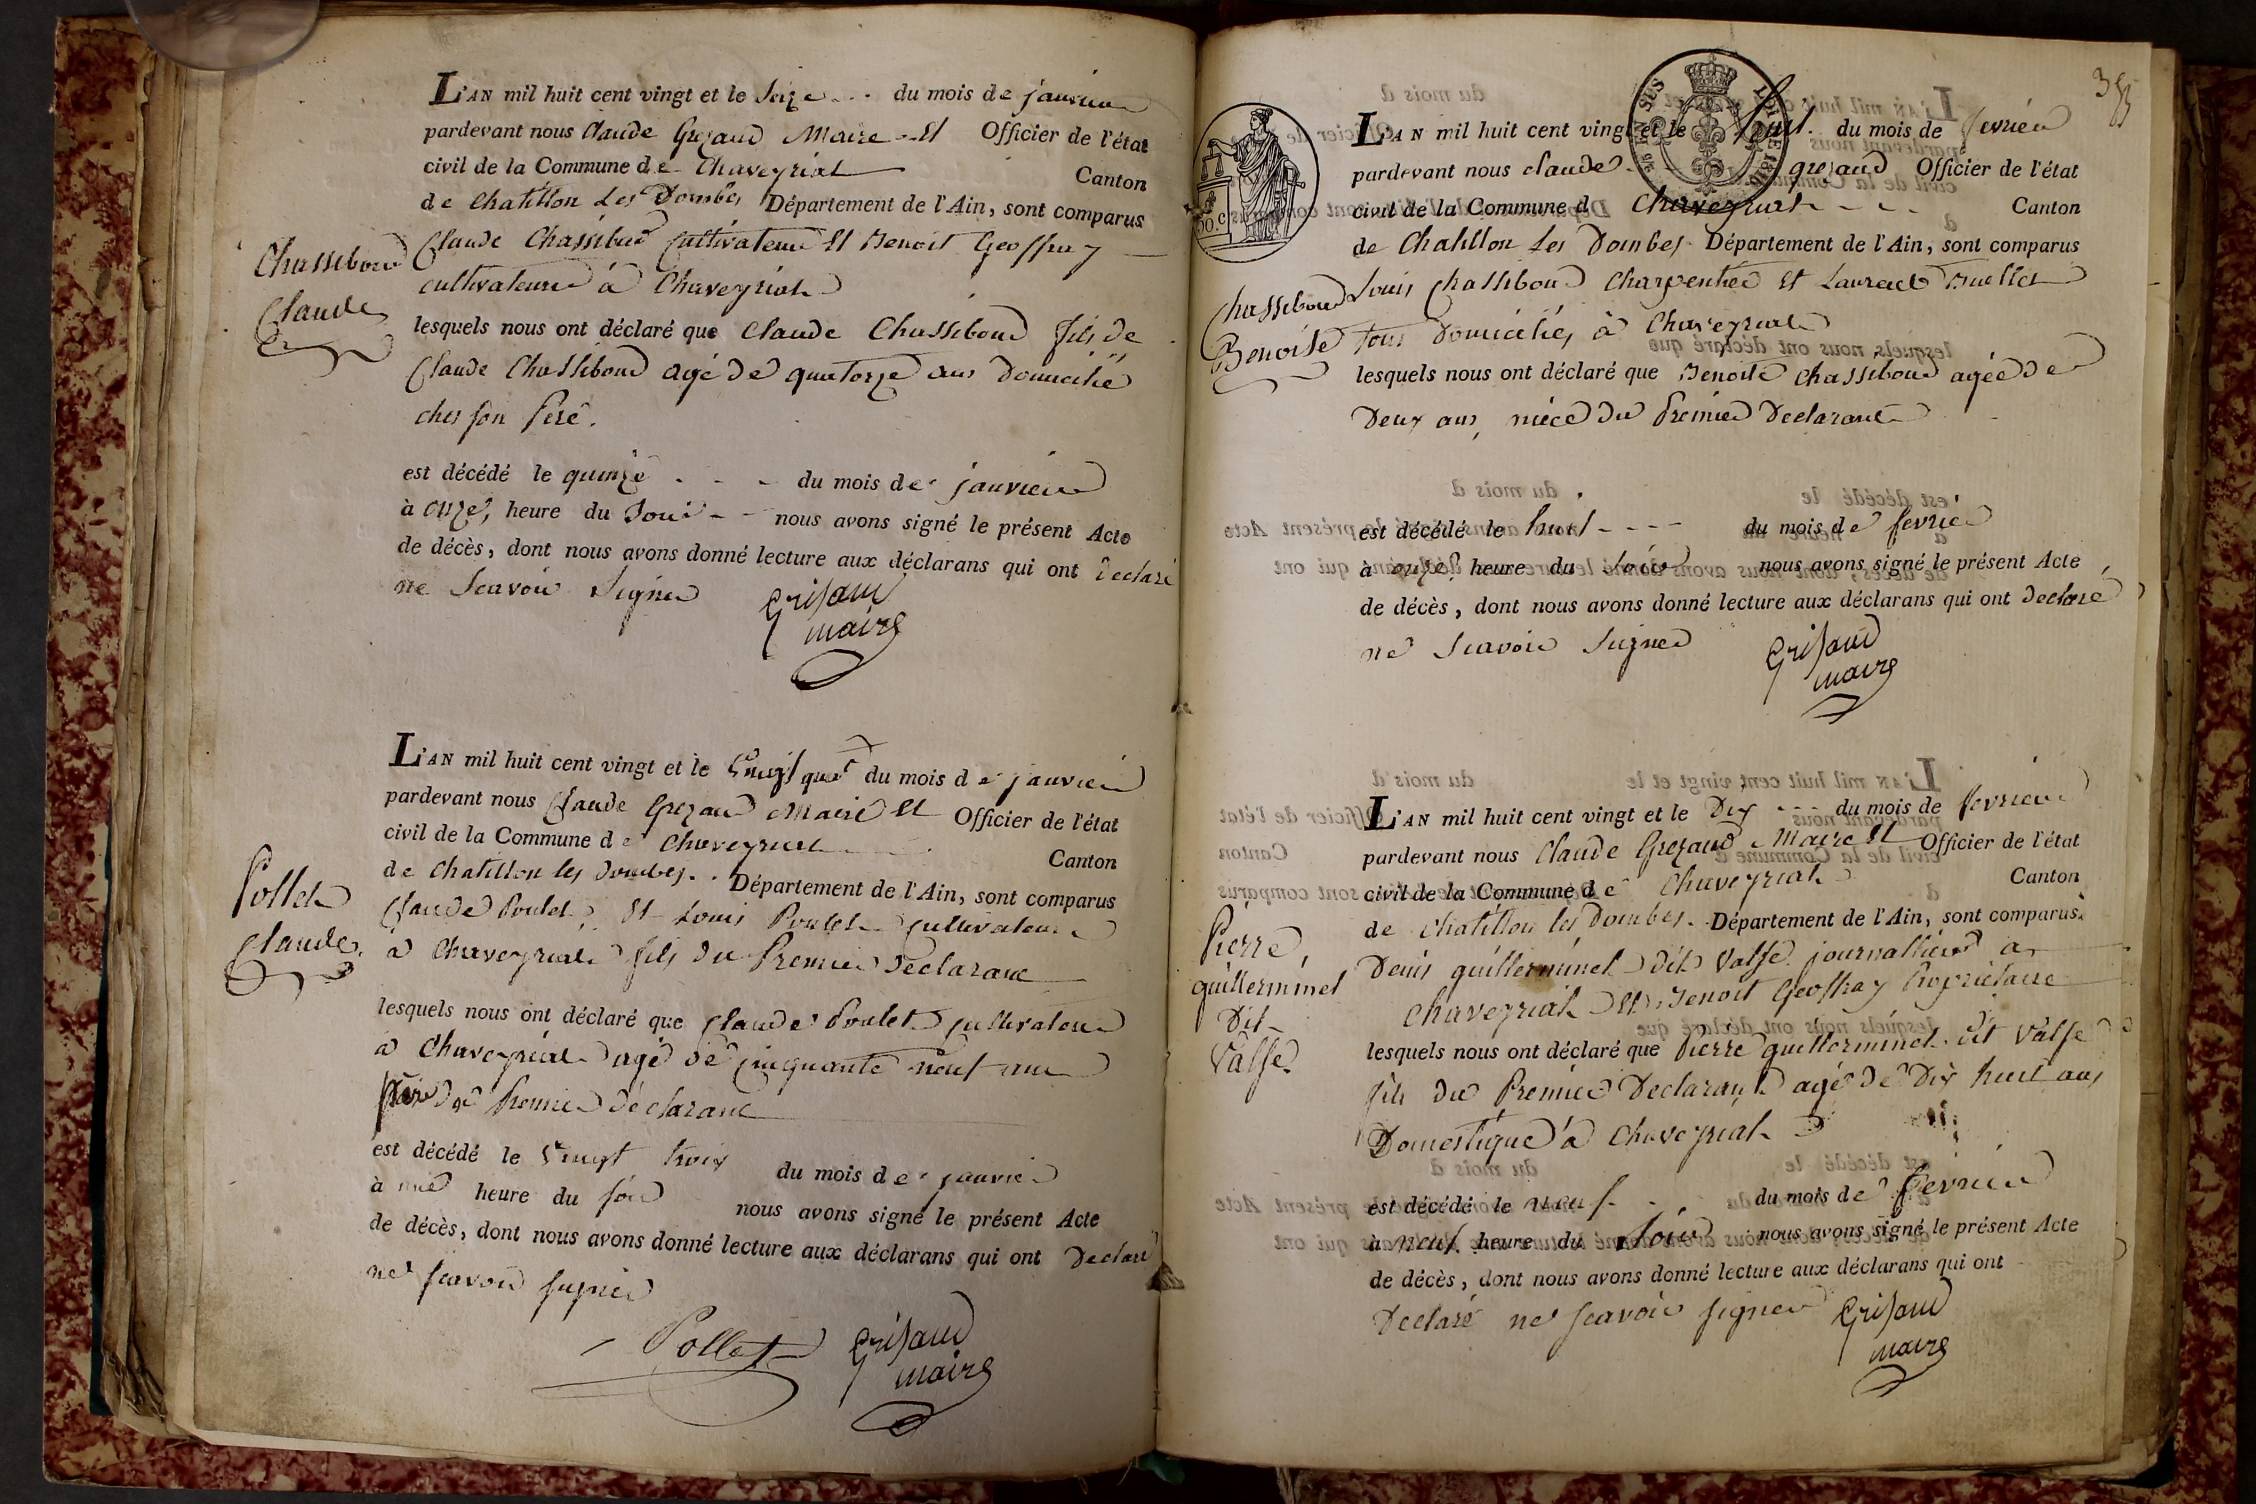 L'AN mil huit cent vingt et le Seize du mois de janvier
pardevant nous Claude Grezaud Maire Et Officier de l'état
civil de la Commune de Chaveyriat Canton
de Chatillon Les Dombes Département de l'Ain, sont comparus
Claude Chassiboud Cultivateur Et Benoit Geoffray
cultivateur à Chaveyriat
Chassiboud
Claude
lesquels nous ont déclaré que Claude Chassiboud fils de
Claude Chassiboud agé de quatorze ans Domicilié
ches son Pere.
est décédé le quinze du mois de janvier
à onze, heure du Soir nous avons signé le présent Acte
de décès, dont nous avons donné lecture aux déclarans qui ont Declaré
ne Scavoir Signer
Grisaud
maire
L'AN mil huit cent vingt et le vingt quat du mois de janvier
pardevant nous Claude Grezaud Maire Et Officier de l'état
civil de la Commune de Chaveyriat Canton
de Chatillon les Dombes. Département de l'Ain, sont comparus
Claude Poulet Et Louis Poulet cultivateur
à Chaveyriat fils du Premier Declarant
Pollet
Claude
lesquels nous ont déclaré que Claude Poulet cultivateur
à Chaveyriat agé de cinquante neuf ans
Premier déclarant
est décédé le vingt trois du mois de janvier
à une heure du soir nous avons signé le présent Acte
de décès, dont nous avons donné lecture aux déclarans qui ont Declaré
ne scavoir signer
Pollet Grisaud
maire
355
L'AN mil huit cent vingt et le huit du mois de fevrier
pardevant nous claude grezaud Officier de l'état
civil de la Commune d Chaveyriat Canton
de Chatillon Les Dombes Département de l'Ain, sont comparus
Louis Chassiboud Charpentier Et Laurent Buellet
tous Domiciliés à Chaveyriat
Chassiboud
Benoite
lesquels nous ont déclaré que Benoite Chassiboud agée de
Deux ans, niéce du Premier Declarant
est décédé le huit du mois de fevrier
à onze heure du soir nous avons signé le présent Acte
de décès, dont nous avons donné lecture aux déclarans qui ont declaré
ne Scavoir Signer
Grisaud
maire
L'AN mil huit cent vingt et le Dix du mois de fevrier
pardevant nous Claude Grezaud Maire Et Officier de l'état
civil de la Commune de Chaveyriat Canton
de Chatillon les Dombes. Département de l'Ain, sont comparus
Denis guillerminet dit Valse journallier à
Chaveyriat Et Benoit Geoffray Propriétaire
Pierre
guillerminet
Dit
Valse
lesquels nous ont déclaré que Pierre guillerminet dit Valse
fils du Premier Declarant agé de Dix huit ans
Domestique à Chaveyriat
est décédé le neuf du mois de fevrier
à neuf heure du Soir nous avons signé le présent Acte
de décès, dont nous avons donné lecture aux déclarans qui ont
Declaré ne scavoir signer
Grisaud
maire